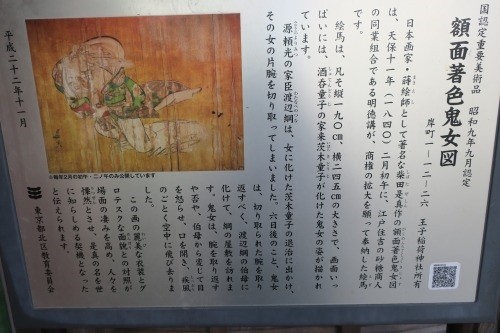 国認定重要美術品 昭和九年九月認定
額面著色鬼女図
岸町一-一二-二六 王子稲荷神社所有
日本画家・蒔絵師として著名な柴田是真作の額面著色鬼女図
は、天保十一年（一八四〇）二月初午に、江戸住吉の砂糖商人
の同業組合である明徳講が、商権の拡大を願って奉納した絵馬
です。
絵馬は、凡そ縦一九〇㎝、横二四五㎝の大きさで、画面いっ
ぱいには、酒呑童子の家来茨木童子が化けた鬼女の姿が描かれ
ています。
源頼光の家臣渡辺綱は、女に化けた茨木童子の退治に出かけ、
その女の片腕を切り取ってしまいました。六日後のこと、鬼女
は、切り取られた腕を取り
返すべく、渡辺綱の伯母に
化けて、綱の屋敷を訪れま
す。鬼女は、腕を取り返す
や否や、伯母から変じて目
を怒らせ、口を開き、疾風
のごとく空中に飛び去りま
した。
この画の麗美な衣裳とグ
ロテスクな面貌との対照が
場面の凄みを高め、人々を
慄然とさせ、是真の名を世
に知らしめる契機となった
と伝えられます。
平成二十二年十一月
東京都北区教育委員会
※毎年2月の初午・二ノ午のみ公開しています